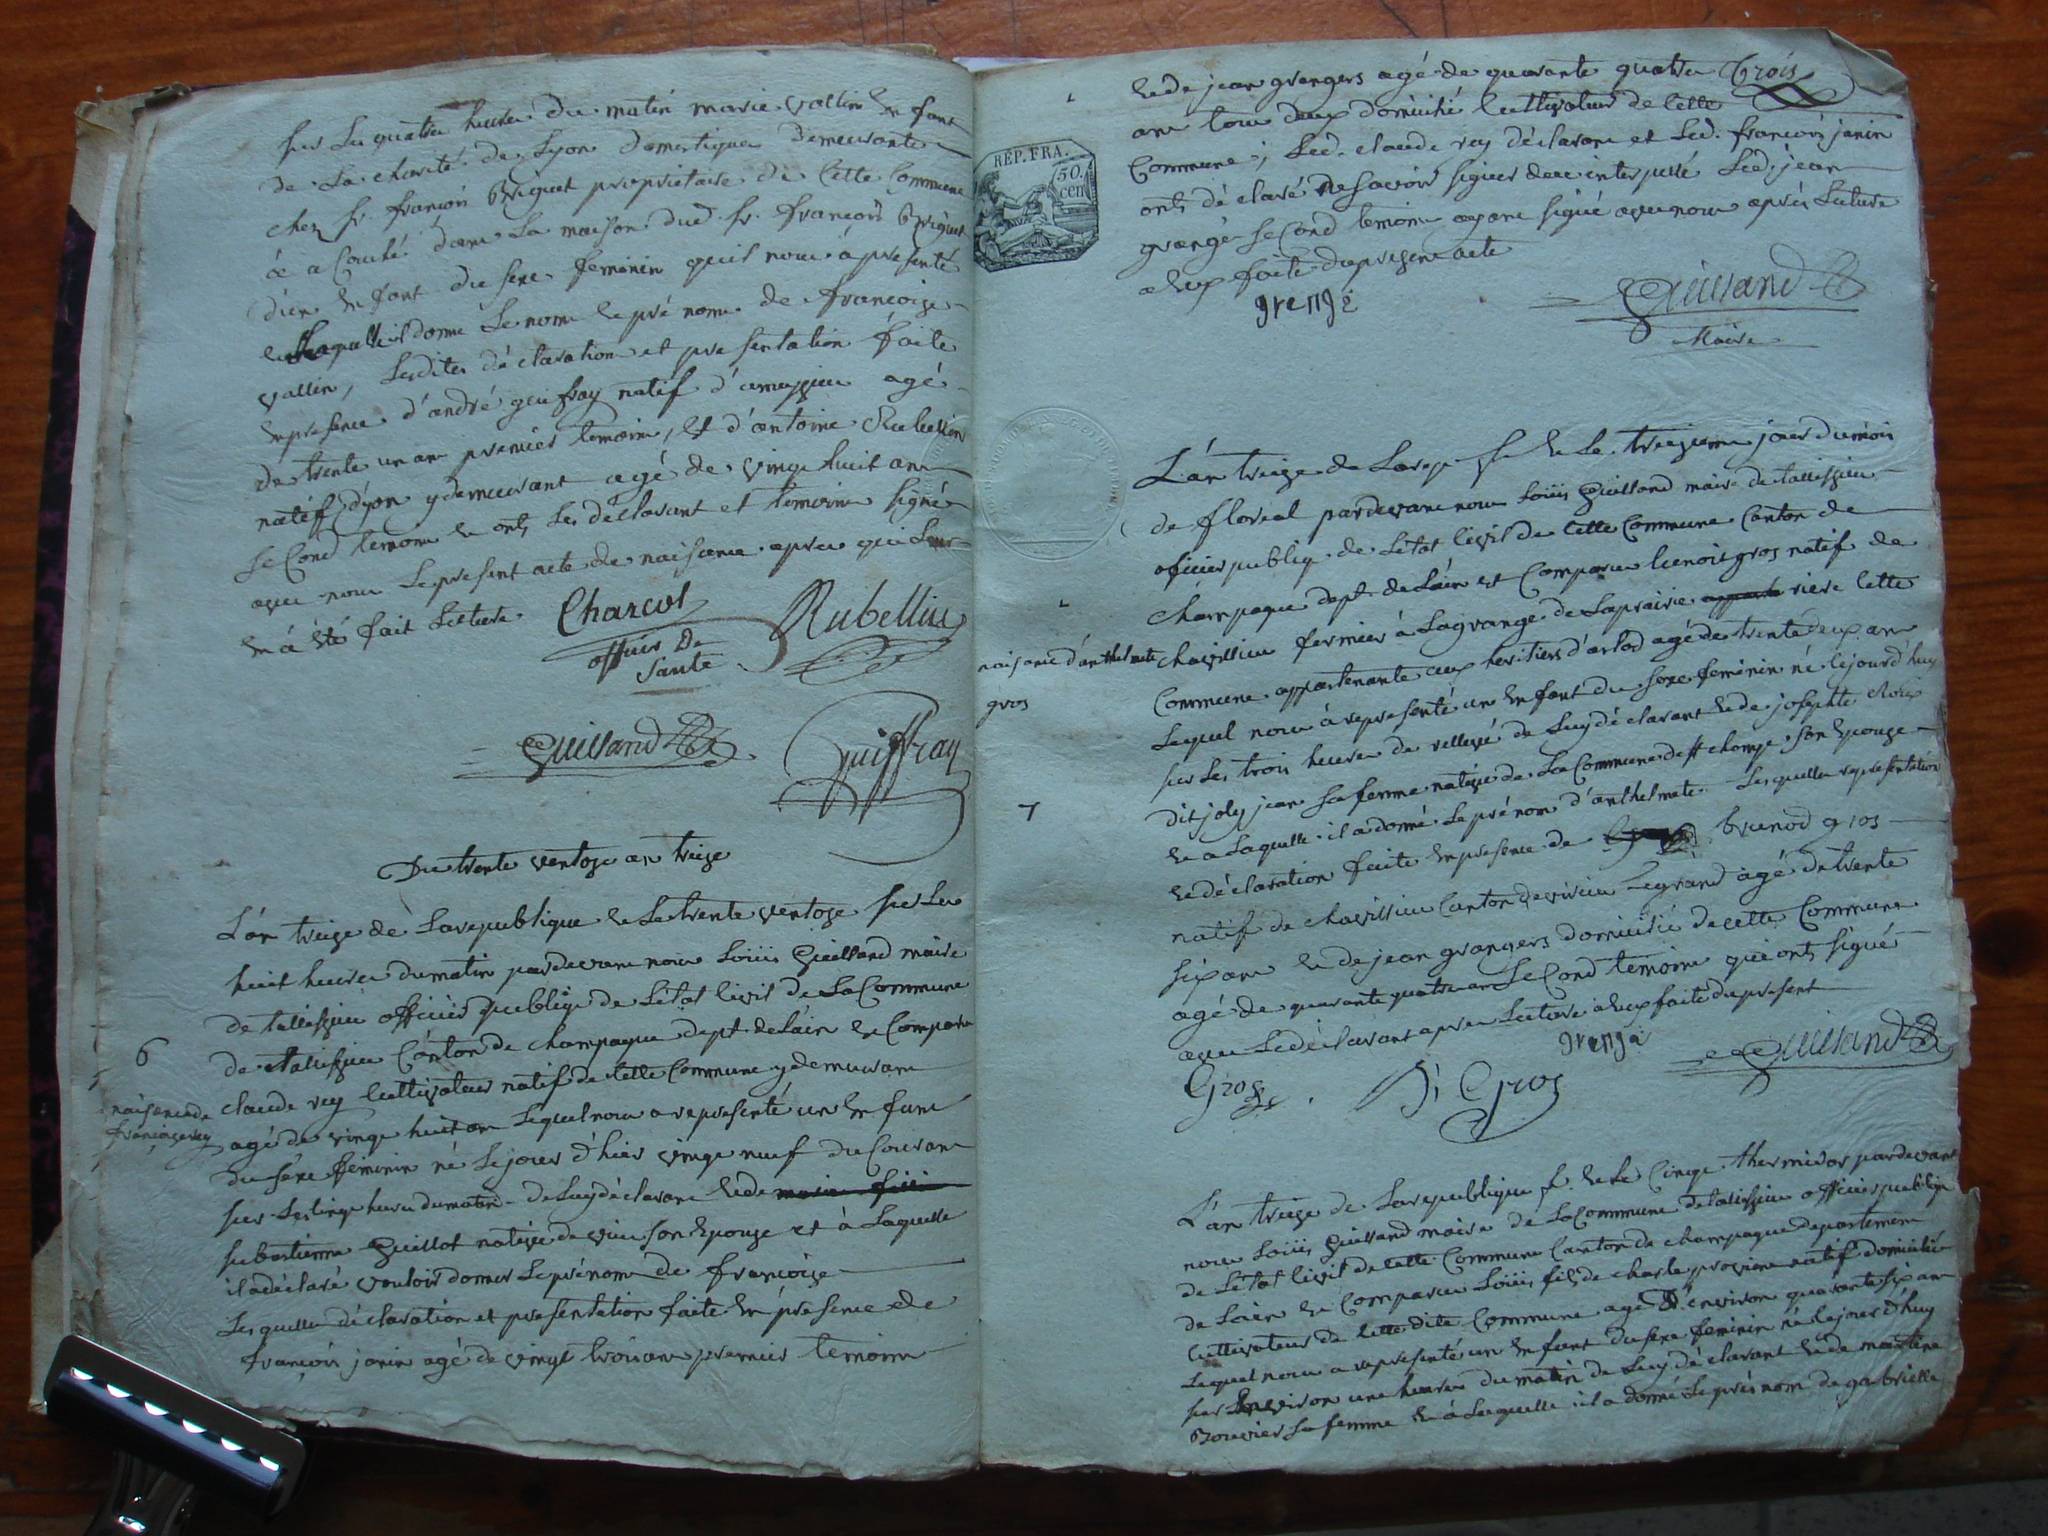 sur les quatre heures du matin marie vallin enfant
de la charité de Lyon domestique demeurante
chez sr. françois Briguet proprietaire de cette Commune
a couché dans la maison dud. sr. françois Briguet
d'un enfant du sexe feminin qu'il nous a presenté
et a laquelle il donne le nom et prénom de françoise
vallin, lesdites déclaration et presentation faite
en presence d'andré guifray natif d'ameyzieu agé
de trente un an premier temoin, et d'antoine Rubellin
natif dyon y demeurant agé de vingt huit an
second temoin et ont les déclarant et temoins signé
avec nous le present acte de naissance apres que leur
en a été fait lecture.
Charcot
officier De
Santé
Rubellin
Guilland
Guiffray
Du trente ventoze an treize
L'an treize de La republique et le trente ventoze sur les
huit heures du matin pardevant nous Loüis Guilland maire
de tallissieu officier publique de L'état civil de La Commune
de tallissieu Canton de champagne dept. de L'ain est Comparu
6
claude rey Cultivateur natif de cette Commune y demeurant
naissance de
françoise rey
agé de vingt huit an Lequel nous a representé un enfant
du sexe feminin né le jour d'hier vingt neuf du Courant
sur les cinq heures du matin de luy déclarant et de
sebastienne Guillot native de vieu son epouse et à Laquelle
il a déclaré vouloir donner le prénom de françoise
Lesquelles déclaration et presentation faite en présence de
françois janin agé de vingt trois an premier temoin
Trois
et de jean grangers agé de quarante quatre
ans tous deux domicilié Cultivateur de Cette
Commune; Led. claude rey déclarant et Led. françois janin
ont déclaré ne savoir signer de ce interpellé Led. jean
grangé second temoin ayant signé avec nous après Lecture
a eux faite du present acte
RÉP. FRA.
50.
cen
grengé
Guilland
Maire
L'an treize de La rep. fr. et le treizieme jour du mois
de floréal pardevant nous Loüis Guilland maire de tallissieu
officier publiq de L'état civil de cette Commune Canton de
champagne dept. de L'ain est Comparu benoit gros natif de
naisance d'anthelmete
gros
chavillieu fermier à Lagrange de La prairie riere Cette
Commune appartenante aux heritiers d'arlod agé de trente deux an
Lequel nous à representé un enfant du sexe feminin né cejourd'huy
sur les trois heures de rellevé de Luy déclarant et de josephte Roux
7
dit joly jean sa femme native de La Commune de son epouse
et a Laquelle il a donné le prénom d'anthelmete Lesquelles representation
et déclaration faite en presence de brunod gros
natif de chavillieu Canton de virieu Legrand agé de trente
six an et de jean grangers domicilié de cette Commune
agé de quarante quatre an second temoin qui ont signés
avec Le déclarant apres Lecture a eux faite du present
grengé
Guilland
Gros
B. Gros
L'an treize de La republique f. et le Cinq thermidor pardevant
nous Loüis Guilland maire de La Commune de talissieu officier publiq
de L'état Civil de cette Commune Canton de champagne departement
de Lain est Comparu Loüis fils de charle natif domicilié
cultivateur de cette dite Commune agé d'environ quarante six an
Lequel nous a representé un enfant du sexe feminin né le jour d'huy
sur environ une heure du matin de Luy déclarant et de martine
Bouvier sa femme et à Laquelle il a donné le prés nom de gabrielle